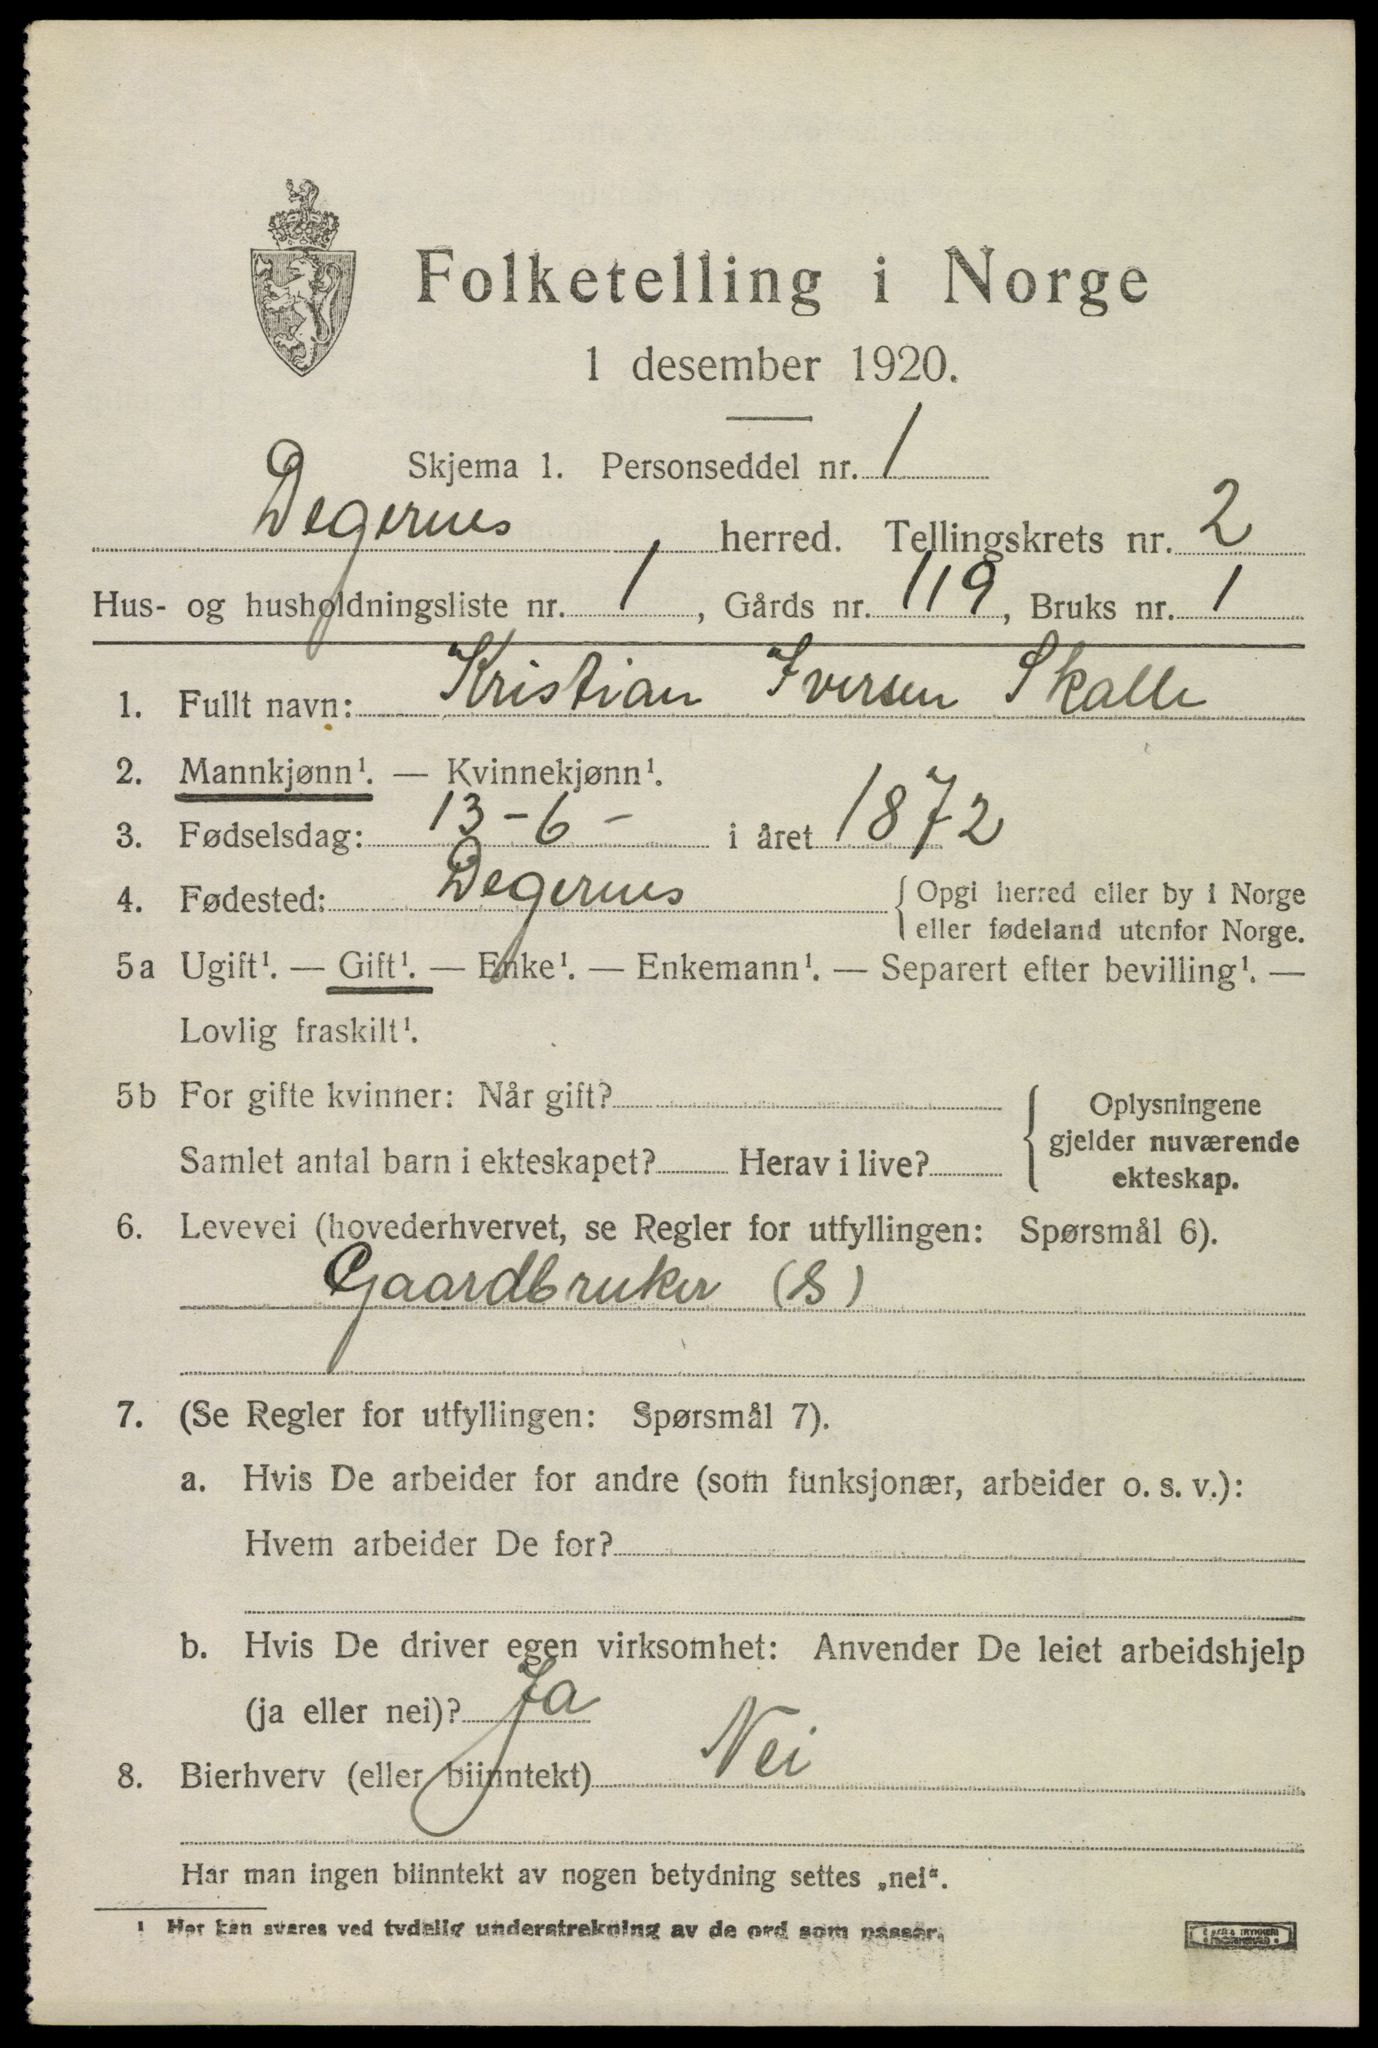 Folketelling i Norge
1 desember 1920.
Skjema 1. Personseddel nr. 1
Degernes herred. Tellingskrets nr. 2
Hus- og husholdningsliste nr. 1, Gårds nr. 119, Bruks nr. 1
1. Fullt navn: Kristian Iversen Skalle
2. Mannkjønn¹. — Kvinnekjønn¹.
3. Fødselsdag: 13-6- i året 1872
4. Fødested: Degernes { Opgi herred eller by i Norge
eller fødeland utenfor Norge.
5a Ugift¹. — Gift¹. — Enke¹. — Enkemann¹. — Separert efter bevilling¹. —
Lovlig fraskilt¹.
5b For gifte kvinner: Når gift?
Samlet antal barn i ekteskapet? Herav i live?
{ Oplysningene
gjelder nuværende
ekteskap.
6. Levevei (hovederhvervet, se Regler for utfyllingen: Spørsmål 6).
Gaardbruker (S)
7. (Se Regler for utfyllingen: Spørsmål 7).
a. Hvis De arbeider for andre (som funksjonær, arbeider o. s. v.):
Hvem arbeider De for?
b. Hvis De driver egen virksomhet: Anvender De leiet arbeidshjelp
(ja eller nei)? Ja
8. Bierhverv (eller biinntekt) Nei
Har man ingen biinntekt av nogen betydning settes „nei“.
¹ Her kan svares ved tydelig understrekning av de ord som passer.